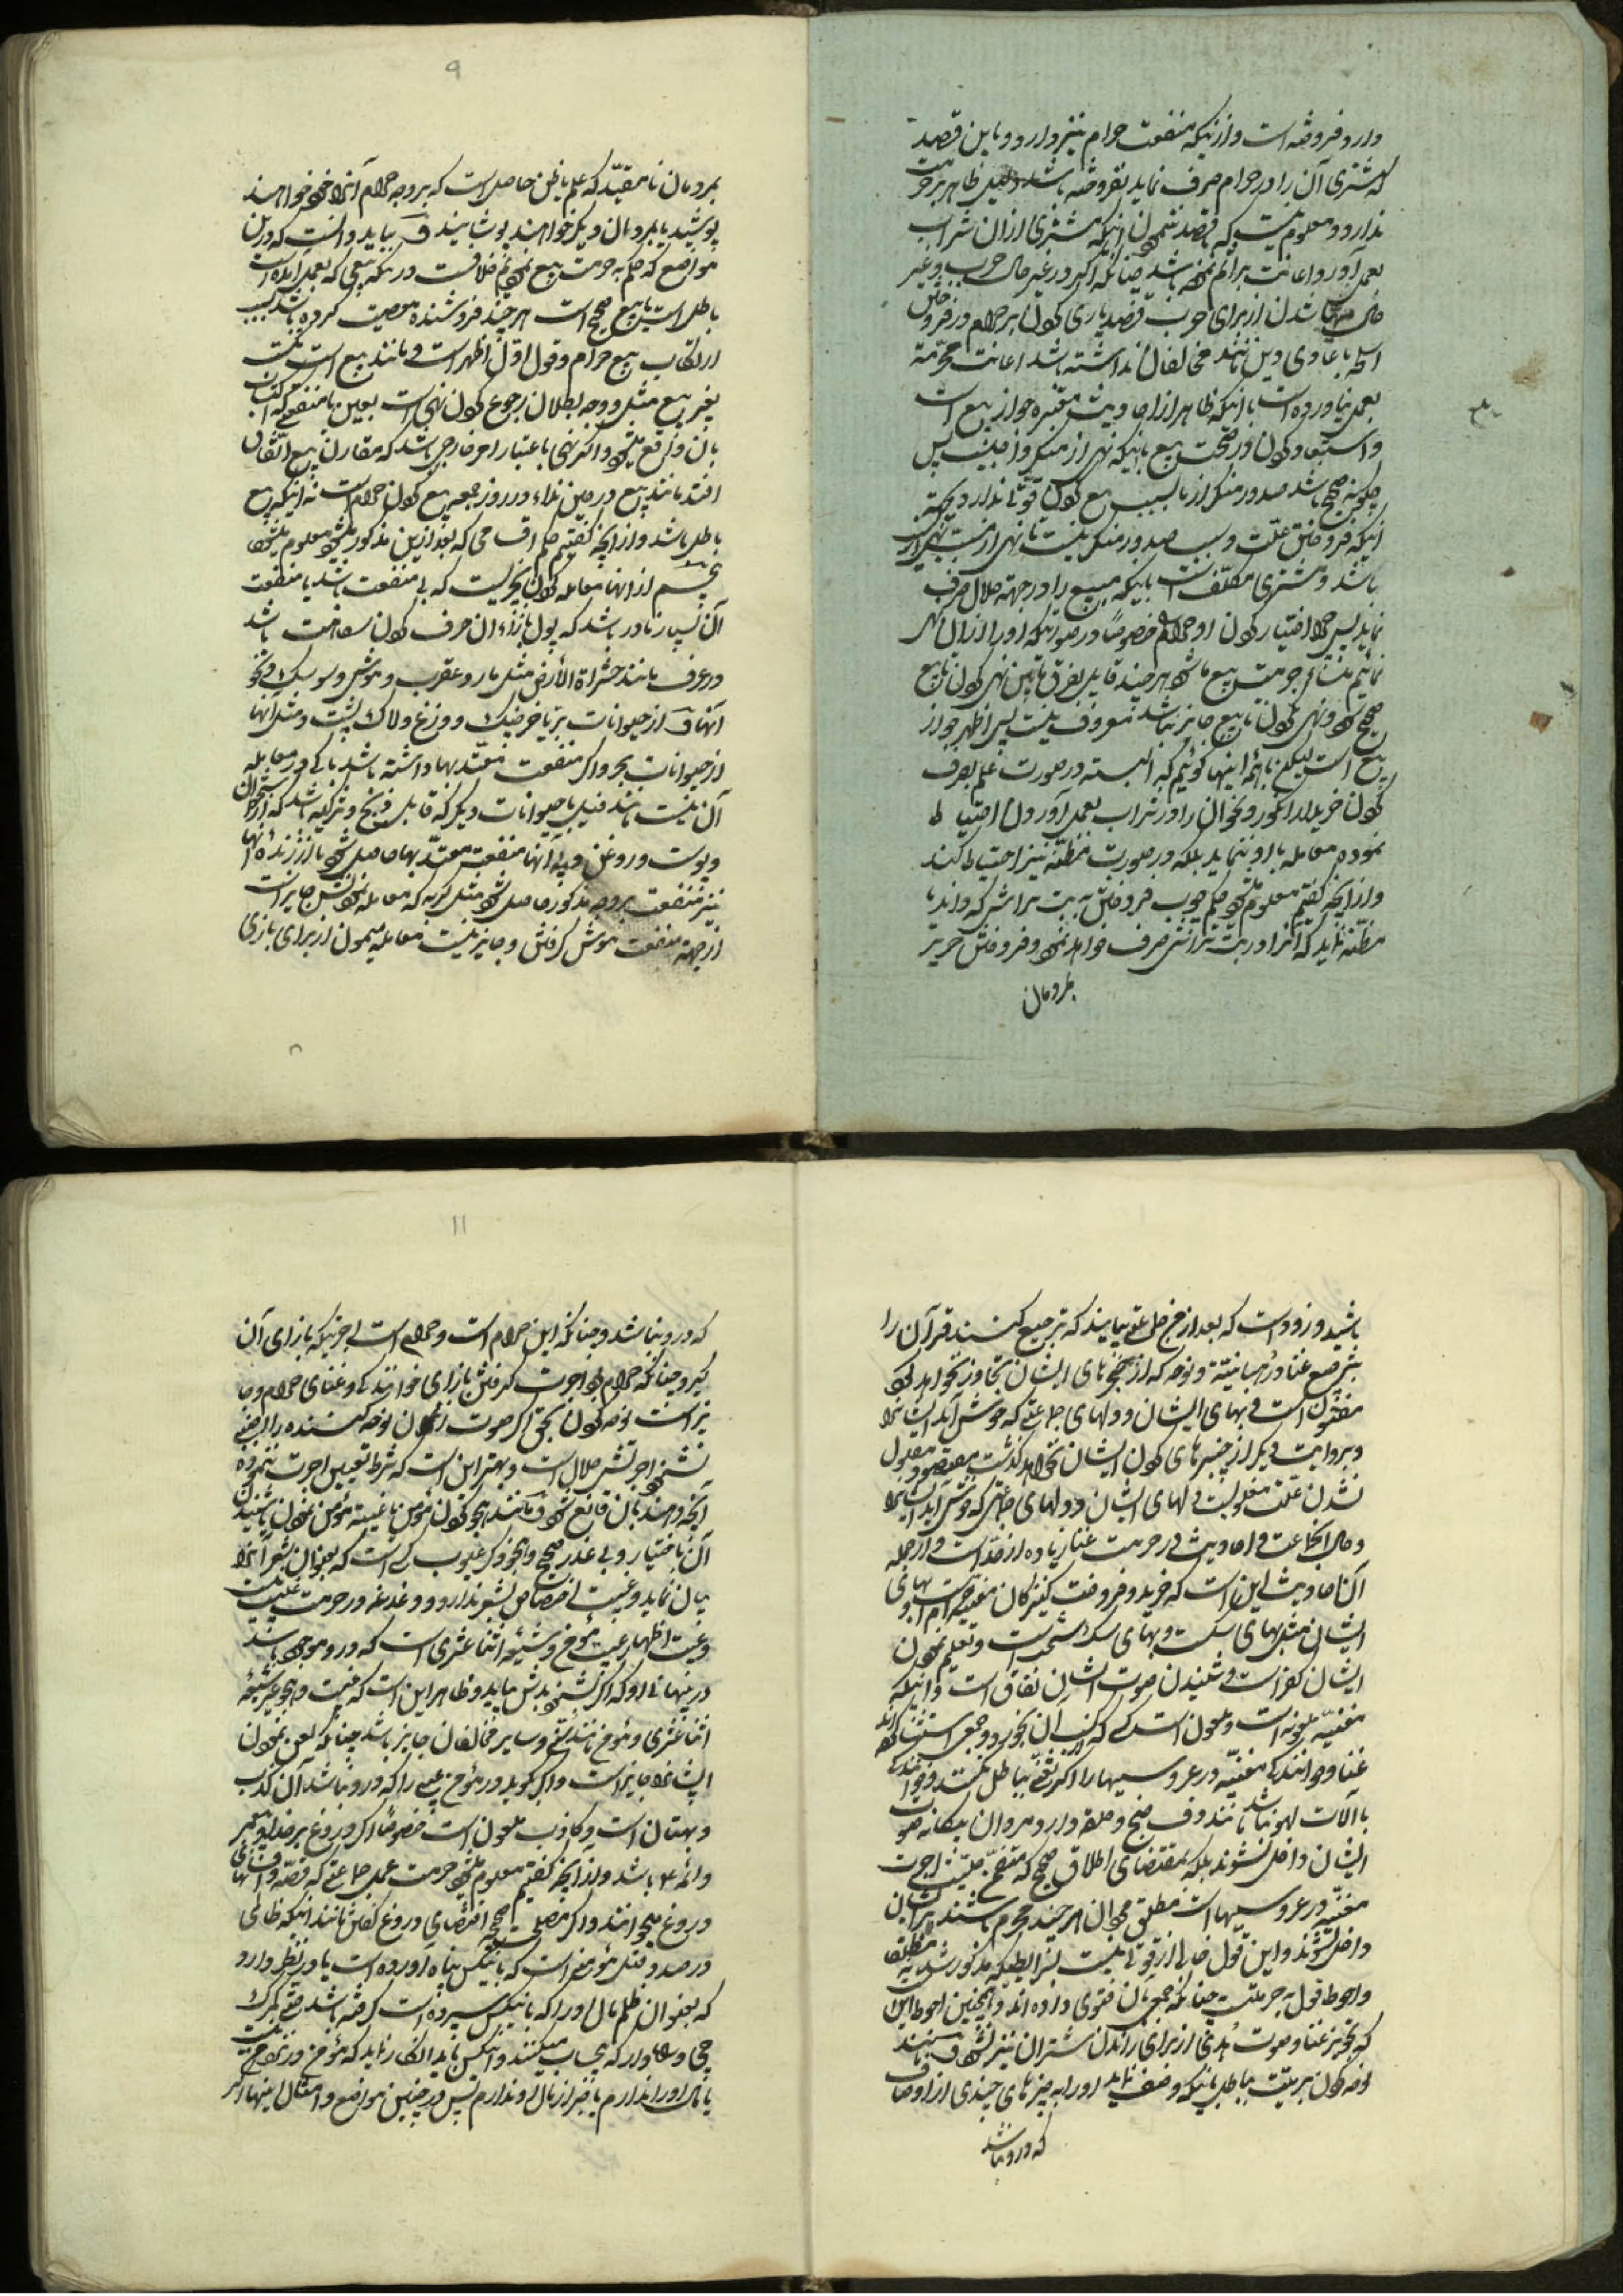 دارد فروشه است و از اینکه منفعت حرام نیز دارد و باین قصد
که مشتری آن را در حرام صرف نماید نفروشه باشد دلیل ظاهر بر حرمت
ندارد و معلوم نیست که بقصد ننمودن اینکه مشتری از آن شراب
بعمل آورد اعانت بر اثم نموده باشد چنانکه اگر در غیر حال حرب و غیر
حال مهیا شدن از برای حرب قصد یاری کردن بر حرام در فروختن
اسلحه با اعادی دین مانند مخالفان نداشته باشد اعانت محرمه
بعمل نیاورده است با اینکه ظاهر از احادیث معتبره جواز بیع است
و استبعاد کردن در صحت بیع باینکه نهی از منکر واجبست پس
چگونه صحیح باشد صدور منکر از بایع بسبب بیع کردن قوتی ندارد بجهة
اینکه فروختن علت و سبب صدور منکر نیست تا نهی از سبب نهی از آن
باشد و مشتری مکلف است باینکه مبیع را در جهة حلال صرف
نماید پس چرا اختیار کردن او حرام را خصوصا در صورتیکه او را از آن نهی
نمائیم منشاء حرمت بیع ما شود هر چند قایل بفرق مابین نهی کردن تا بیع
صحیح شود و نهی نکردن تا بیع جایز نباشد معروف نیست پس اظهر جواز
بیع است لیکن با همه اینها گوئیم که البته در صورت علم بصرف
کردن خریدار انگور و نحو آن را در شراب بعمل آوردن احتیاط
نموده معامله با او ننماید بلکه در صورت مظنه نیز احتیاط کند
و از آنچه گفتیم معلوم شود حکم چوب فروختن به بت تراش که داند یا
مظنه نماید که آنرا در بت تراشی صرف خواهد نمود و فروختن حریر
بمردمان
۹
بمردمان نامقید که علم یا ظن حاصل است که بر وجه حرام آنرا خود خواهند
پوشید یا بمردمان دیگر خواهند پوشانید ف بباید دانست که در این
مواضع که حکم به حرمت بیع نمودیم خلافست در اینکه بیعی که بعمل آمده است
باطل است یا بیع صحیح است هر چند فروشنده معصیت کرده باشد بسبب
ارتکاب بیع حرام و قول اول اظهر است و مانند بیع است
بغیر بیع مثل و وجه بطلان رجوع کردن نهی است بعین یا منفعتی که اکتساب
بآن واقع میشود و اگر نهی باعتبار امر خارجی باشد که مقارن بیع اتفاق
افتد مانند بیع در حین نداء در روز جمعه بیع کردن حرام است نه اینکه بیع
باطل باشد و از آنچه گفتیم حکم اقسامی که بعد از این مذکور میشود معلوم میشود
پنجم از آنها معامله کردن بچیزیست که بی منفعت باشد یا منفعت
آن بسیار نادر باشد که پول بازاء آن صرف کردن سفاهت باشد
در عرف مانند حشراة الأرض مثل مار و عقرب و موش و سوسک و نحو
آنها ف از حیوانات بر یا خرچنگ و وزغ و لاک پشت و مثل آنها
از حیوانات بحر و اگر منفعت معتد بها داشته باشد باکی در معامله
آن نیست مانند فیل یا حیوانات دیگر که قابل ذبح و تزکیه باشد که از استخوان
و پوست و روغن و پیه آنها منفعت معتد بها حاصل شود یا از زنده آنها
نیز منفعت بر وجه مذکور حاصل شود مثل گربه که معامله نمودنش جایز است
از جهة منفعت موش گرفتن و جایز نیست معامله میمون از برای بازی
باشید و زود است که بعد از من جماعتی بیایند که ترجیع کنند قرآن را
بترجیع غنا و رهبانیة و نوحه که از حنجره‌های ایشان تجاوز نخواهد کرد
مفتونست دلهای ایشان و دلهای جماعتی که خوش آید ایشانرا
و بروایت دیگر از چنبرهای گردن ایشان نخواهد گذشت مقصود مقبول
نشدن علت مقلوبیت دلهای ایشان و دلهای جماعتی که خوش آید ایشانرا
و حال آنجماعت و احادیث در حرمت غنا زیاده از حد است و از جمله
آن احادیث اینست که خرید و فروخت کنیزکان مغنیه حرام است و بهای
ایشان مثل بهای سگست و بهای سگ سحت است و تعلیم نمودن
ایشان کفر است و شنیدن صوت ایشان نفاق است و اینکه
مغنیه ملعونه است و ملعون است کسی که از کسب آن بخورد و جمعی استثنا کرده اند
غنا و خوانندگی مغنیه در عروسیها را اگر تغنی بباطل نکند و خوانندگی
با آلات لهو نباشد مانند دف و صنج و حلقه دار و مردان بیگانه صوت
ایشان داخل نشوند بلکه بمقتضای اطلاق صحیح که متضمن حلیت اجرت
مغنیه در عروسیها است مطلق مردان هر چند محرم باشند بر ایشان
داخل نشوند و این قول خالی از قوتی نیست بشرایطی که مذکور شد
و احوط قول به حرمتست چنانکه جمعی بآن فتوی داده اند و همچنین احوط این است
که تجویز غنا و صوت حدی از برای راندن شتران نیز نشود
نوحه کردن بر میت بباطل باینکه وصف نماید او را بچیزهای چندی از اوصاف
که در او نباشد
۱۱
که در او نباشد و چنانکه این حرام است و حرام است اجرتیکه بازای آن
گیرد چنانکه حرام بود اجرت گرفتن بازای خوانندگی و غنای حرام و جایز
نیز است نوحه کردن بحق اگر صوت زنان نوحه کننده را اجنبی
نشنود اجرتش حلال است و بهتر این است که شرط تعیین اجرت ننموده
آنچه دهند بآن قانع شود و مانند هجو کردن مؤمن یا غیبت مؤمن نمودن یا شنیدن
آن باختیار و بی عذر صحیح و هجو ذکر عیوب کسی است که بعنوان شعر آنرا
بیان نماید و غیبت اختصاص بشعر ندارد و دغدغه در حرمت غیبت نیست
و غیبت اظهار عیب مؤمن و شیعه اثنا عشری است که در او موجود باشد
در پنهانی او که اگر بشنود بدش بیاید و ظاهر این است که غیبت و هجو غیر شیعه
اثنا عشری و مؤمن مانند سنی و سایر مخالفان جایز باشد چنانکه لعن نمودن
ایشانرا جایز است و اگر بگوید در مؤمن عیبی را که در او نباشد آن کذب
و بهتان است و کاذب ملعون است خصوصا اگر دروغ بر خدا و پیغمبر
و ائمه ع باشد و از آنچه گفتیم معلوم میشود حرمت عمل جماعتی که قصه و افسانهای
دروغ میخوانند و اگر مصلحت صحیح اقتضای دروغ گفتن مانند اینکه ظالمی
در صدد قتل مؤمنی است که باین کس پناه آورده است یا در نظر دارد
که بعنوان ظلم مال او را که باین کس سپرده است گرفته باشد حتی گمرک
چی و راهدار که بیحساب میگیرند و اینکس باید انکار نماید که مؤمن در نزد من نیست
یا مال او را ندارم یا خبر از مال او ندارم پس در چنین مواضع و امثال اینها اگر